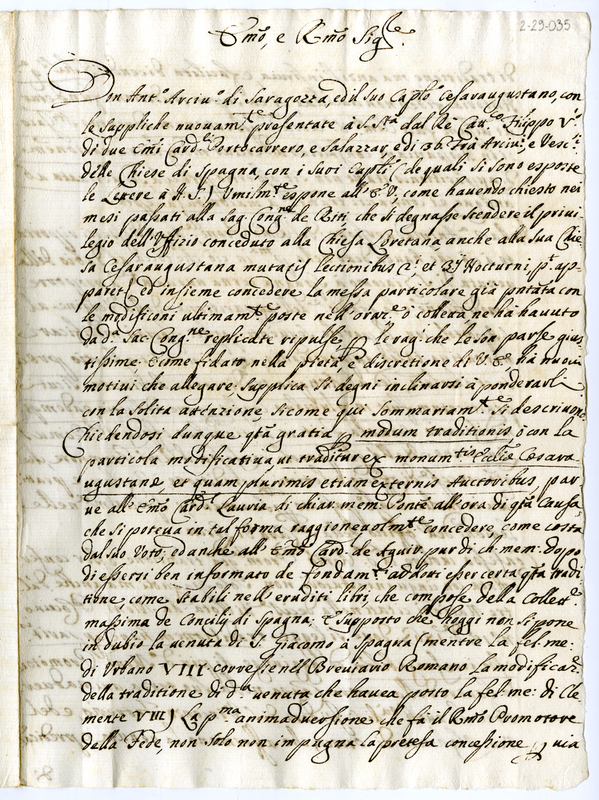 2-29-035
Emo, e Rmo Sigre.
Don Anto. Arciuo. di Saragozza, ed il suo Caplo. Cesaraugustano, con
le suppliche nuouamte. presentate à S. Sta. dal Re Cattco. Filippo Vo.
di due Emi Cardli. Portocarrero, e Salazzar, e di 36. Frà Arciui. e Vesci.
delle Chiese di Spagna, con i suoi Caplli. (de quali si sono esposte
le Lettere à N. Sre.) Vmilmte. espone all'E. V., come hauendo chiesto nei
mesi passati alla Sag. Congne. de Riti che si degnasse stendere il priui-
legio dell'Vffizio conceduto alla Chiesa Loretana anche alla sua Chie-
sa Cesaraugustana mutatis lectionibus 2i. et 3ij Nocturni, pt. ap-
paret, ed insieme concedere la messa particolare già pntata con
le modificoni ultimamte. poste nell'oraze. ò colletta ne hà hauuto
da da. Sac. Congne. replicate ripulse p. le ragi. che le son parse gius-
tissime. E come fidato nella pietà, e discretione di V. E. hà nuoui
motiui che allegare. Supplica si degni inclinarsi à ponderarli
con la solita attenzione, sicome qui sommariamte. si descriuono
Chiedendosi dunque qta. gratia p. modum traditionis ò con la
particola modificatiua ut traditur ex monumtis Eccliæ Cesara
ugustanę, et quam plurimis etiam externis Auctoribus, par
ue all'Emo Cardl. Lauria di chiar. mem. Ponte all'ora di qta. Causa,
che si poteua in tal forma raggioneuolmte. concedere, come costa
dal suo Voto; ed anche all'Emo Card. de Aguir. pur di ch. mem. dopo
di essersi ben informato de fondamti. addotti esser certa qta. tradi
tione, come stabilì nell'eruditi libri, che compose della Collette.
massima de Concilij di Spagna; E supposto che hoggi non si pone
in dubio la uenuta di S. Giacomo à Spagna (mentre la fel. me.
di Vrbano VIII corresse nell Breuiario Romano la modificaze.
della traditione di da. uenuta che hauea posto la fel. me: di Cle
mente VIII) La pma. animaduersione che fà il Rmo Promotore
della Fede, non solo non impugna la pretesa concessione p. uia